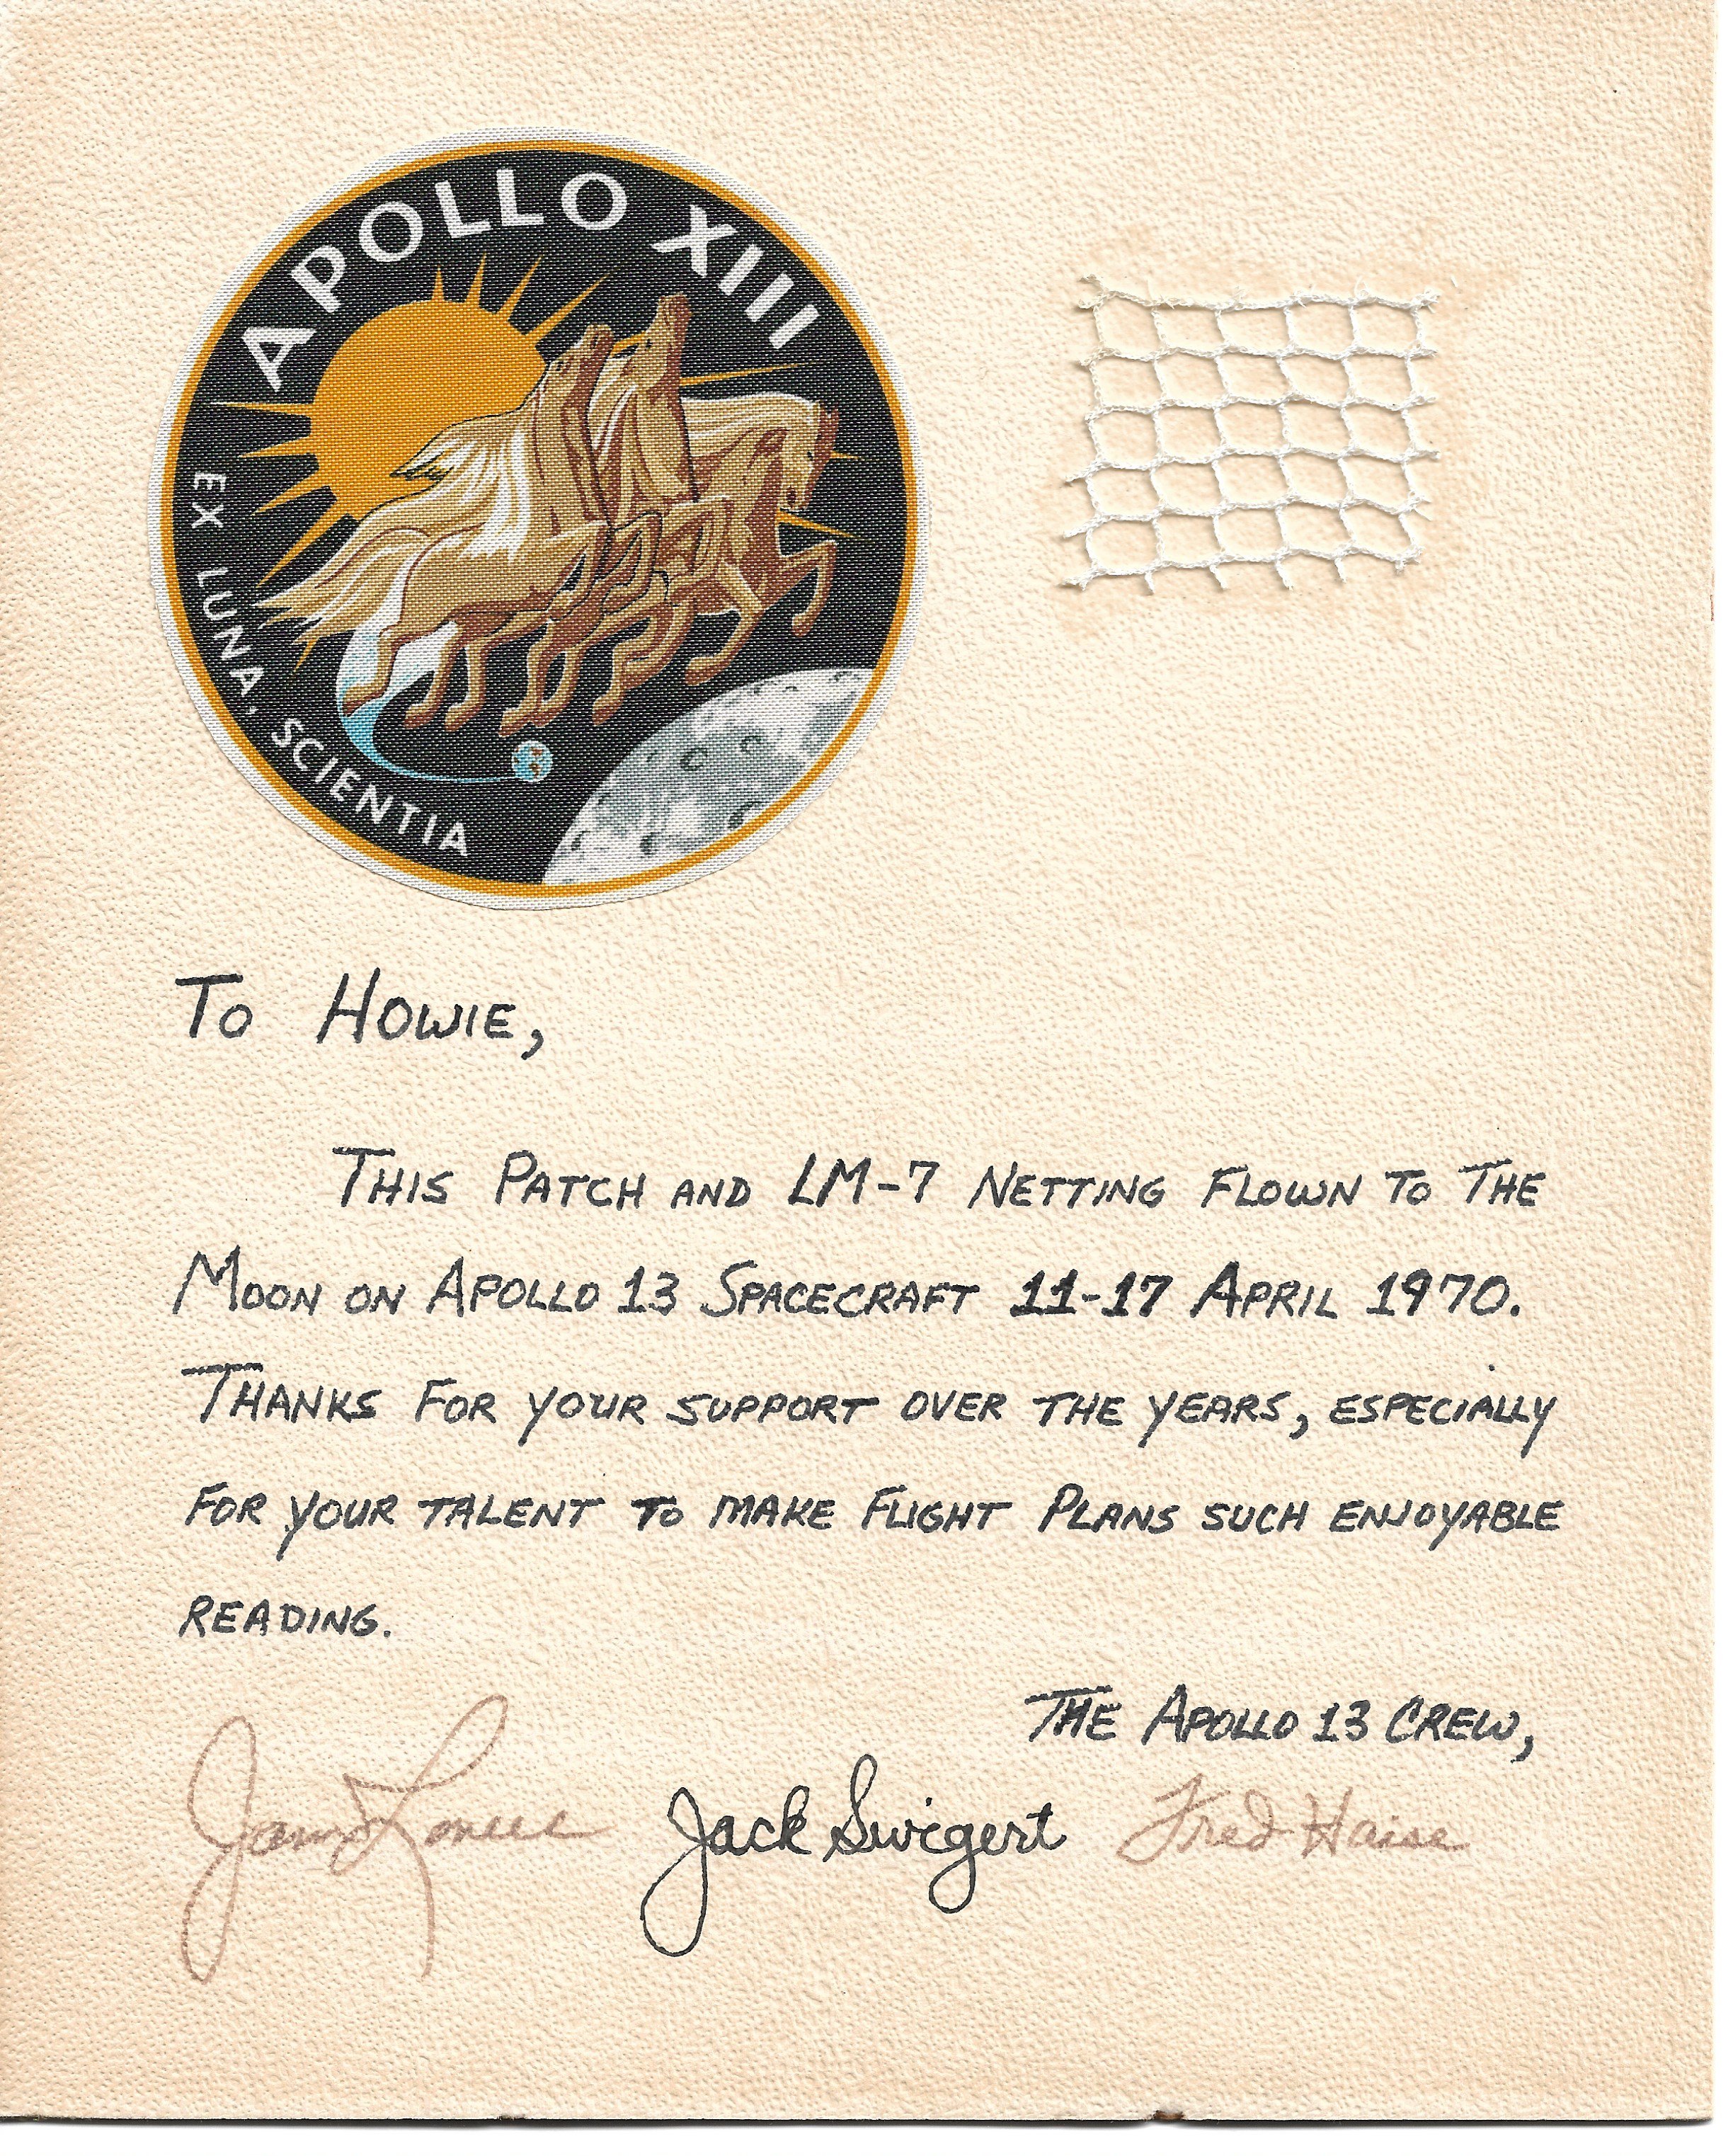 APOLLO XIII
EX LUNA, SCIENTIA
To HOWIE,
THIS PATCH AND LM-7 NETTING FLOWN TO THE
MOON ON APOLLO 13 SPACECRAFT 11-17 APRIL 1970.
THANKS FOR YOUR SUPPORT OVER THE YEARS, ESPECIALLY
FOR YOUR TALENT TO MAKE FLIGHT PLANS SUCH ENJOYABLE
READING.
THE APOLLO 13 CREW,
James Lovell Jack Swigert Fred Haise